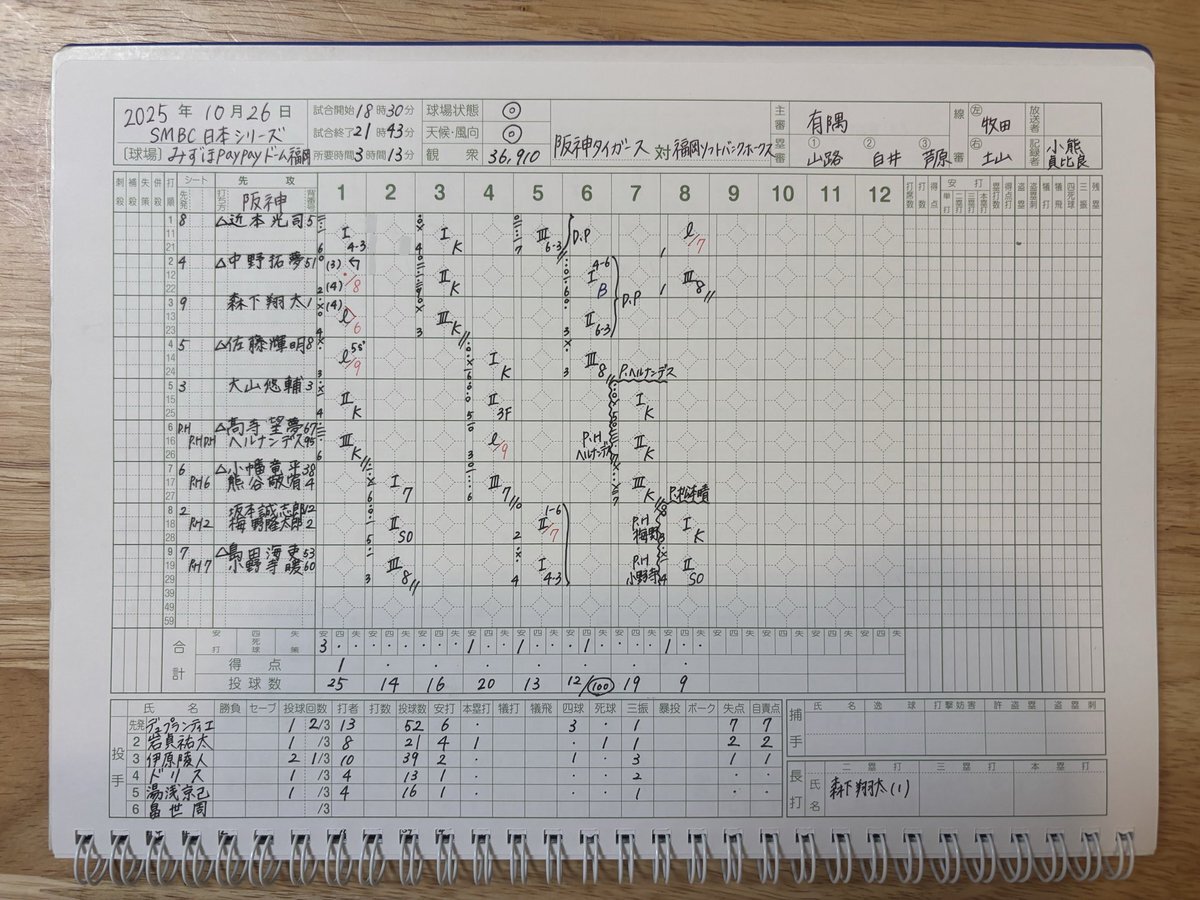 2025年10月26日
SMBC日本シリーズ
〔球場〕みずほPayPayドーム福岡
試合開始18時30分
試合終了21時43分
所要時間3時間13分
球場状態 ◎
天候・風向 ◎
観衆 36,910
阪神タイガース 対 福岡ソフトバンクホークス
主審 有隅
塁審 ①山路 ②白井 ③芦原
線審 左 牧田 右 土山
放送者
記録者 小熊 真比良
刺殺 補殺 失策 併殺 打順 シート 先発 先攻 打ち方 阪神 背番号 1 2 3 4 5 6 7 8 9 10 11 12 打席数 打数 得点 安打 単打 二塁打 三塁打 本塁打 塁打数 得点打 盗塁 盗塁刺 犠打 犠飛 四死球 三振 残塁
1 11 21 8 △近本光司 5 I 4-3 I K III 6-3 D.P l/7
2 12 22 4 △中野拓夢 51 (3) (4) /8 II K 4-6 I B III 8
3 13 23 9 森下翔太 1 (4) l/6 III K II 6-3 D.P
4 14 24 5 △佐藤輝明 8 l/9 I K III 8 P.ヘルナンデス
5 15 25 3 大山悠輔 3 II K II 3F I K
6 16 26 D.H △高寺望夢 67 III K l/9 P.H ヘルナンデス II K
P.H D.H ヘルナンデス 95
7 17 27 6 △小幡竜平 38 I 7 III 7 III K P.松本晴
P.H 6 熊谷敬宥 4
8 18 28 2 坂本誠志郎 12 II SO 1-6 II/7 P.H 梅野 I K
P.H 2 梅野隆太郎 2
9 19 29 7 △島田海吏 53 III 8 I 4-3 P.H 小野寺 II SO
P.H 7 小野寺暖 60
39 49 59
合計 安打 四死球 失策 3 · · · · · · · · 1 · · 1 · · 1 · · · · · 1 · ·
得点 1 · · · · · · ·
投球数 25 14 16 20 13 12/100 19 9
投手 氏名 勝負 セーブ 投球回数 打者 打数 投球数 安打 本塁打 犠打 犠飛 四球 死球 三振 暴投 ボーク 失点 自責点
先発 デュプランティエ 1 2/3 13 52 6 · · · 3 · 1 · · 7 7
2 岩貞祐太 1 /3 8 21 4 1 · · · 1 1 · · 2 2
3 伊原陵人 2 1/3 10 39 2 · · · 1 · 3 · · 1 1
4 ドリス 1 /3 4 13 1 · · · · · 2 · · · ·
5 湯浅京己 1 /3 4 16 1 · · · · · 1 · · · ·
6 畠世周 /3
捕手 氏名 逸球 打撃妨害 許盗塁 盗塁刺
長打 氏名 二塁打 三塁打 本塁打
森下翔太(1)